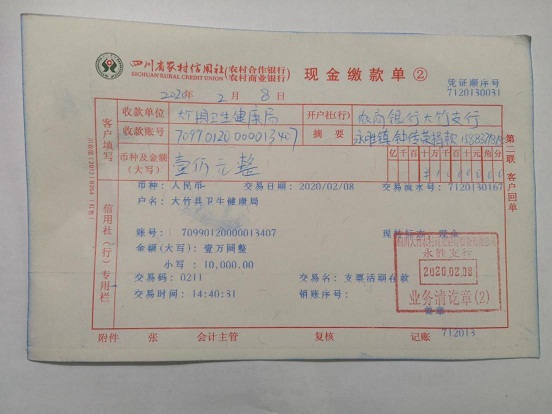 四川省农村信用社(农村合作银行 农村商业银行) 现金缴款单 ②
SICHUAN RURAL CREDIT UNION
凭证顺序号
7120130031
2020年 2月 8日
客户填写
收款单位 大竹县卫生健康局 开户社(行) 农商银行大竹支行
收款账号 70990120000013407 摘要
币种及金额(大写) 壹万元整 亿千百十万千百十元角分
第二联 客户回单
信用社(行)专用栏
币种: 人民币 交易日期: 2020/02/08 交易流水号: 7120130167
户名: 大竹县卫生健康局
账号: 70990120000013407
金额(大写): 壹万圆整
小写: 10,000.00
交易码: 0211 交易名: 支票活期存款
交易时间: 14:40:31 销账序号:
永胜支行
2020.02.08
业务清讫章(2)
附件 张 会计主管 复核 记账 712013